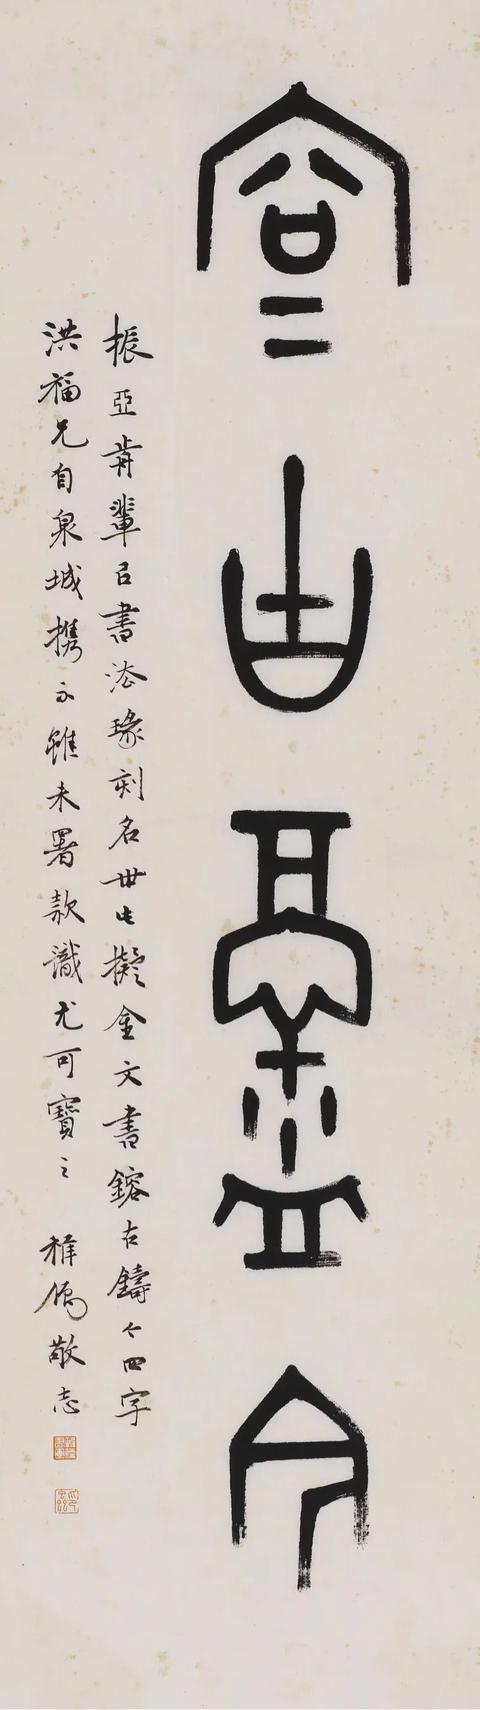 鎔古鑄今
振亞前輩㠯書法瑑刻名世此擬金文書鎔古鑄今四字
洪福兄自泉城攜示雖未署款識尤可寶之 稚敬志